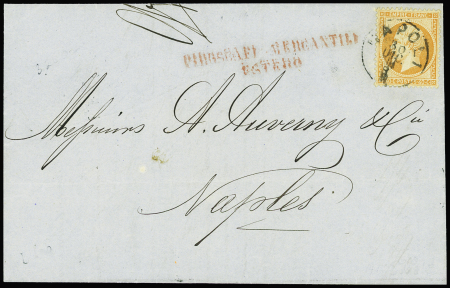 PIROSCAFI MERCANTILI
ESTERO
NAPOLI
Messieurs A. Auverny & Cie
Naples